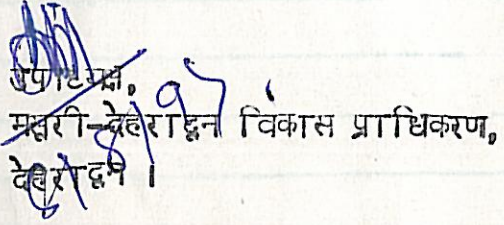 उपाध्यक्ष,
मसूरी-देहरादून विकास प्राधिकरण,
देहरादून ।